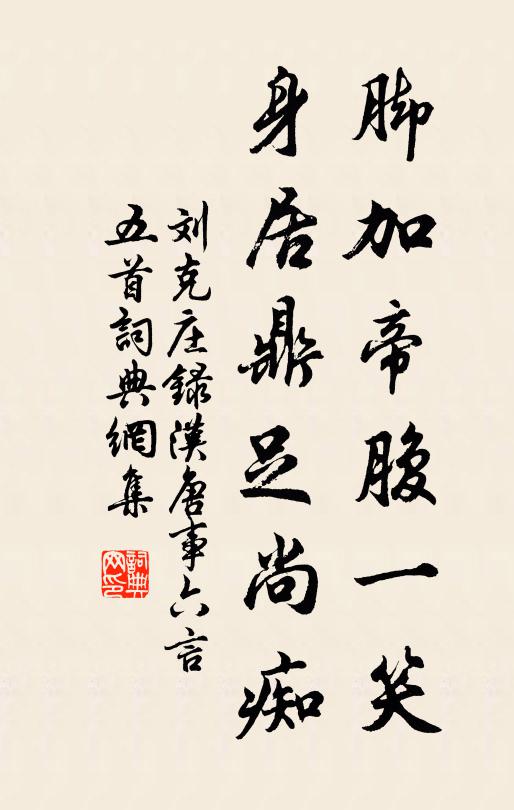 脚加帝腹一笑
身居鼎足尚痴
刘克庄録漢唐事六言
五首詞典網集
詞典网印